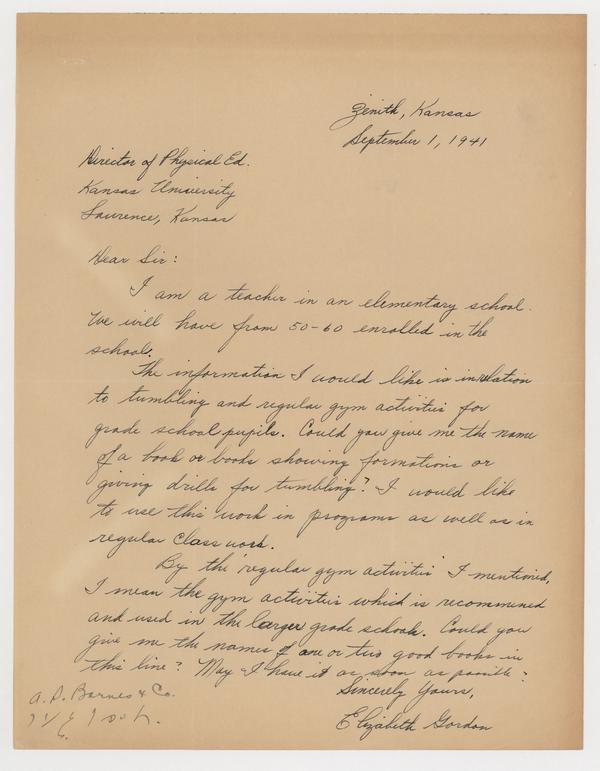 Zenith, Kansas
September 1, 1941
Director of Physical Ed.
Kansas University
Lawrence, Kansas
Dear Sir:
I am a teacher in an elementary school.
We will have from 50-60 enrolled in the
school.
The information I would like is in relation
to tumbling and regular gym activities for
grade school pupils. Could you give me the name
of a book or books showing formations or
giving drills for tumbling? I would like
to use this work in programs as well as in
regular class work.
By the "regular gym activities" I mentioned,
I mean the gym activities which is recommened
and used in the larger grade schools. Could you
give me the names of one or two good books in
this line? May I have it as soon as possible?
Sincerely Yours,
Elizabeth Gordon
A. S. Barnes & Co.